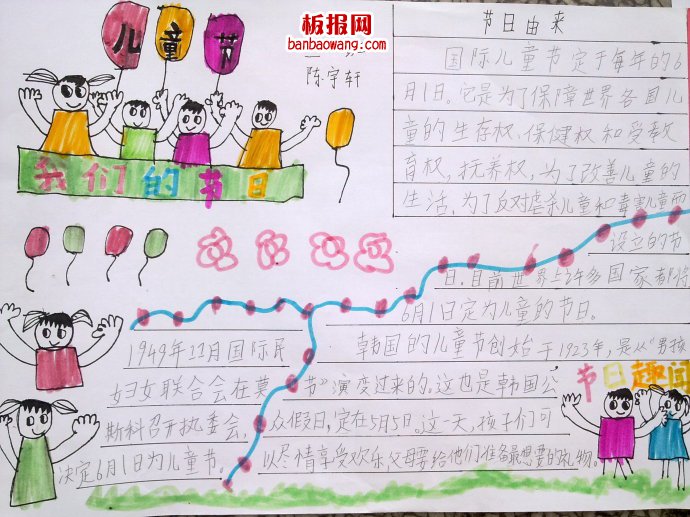 板报网
banbaowang.com
儿童节
陈宇轩
我们的节日
节日由来
国际儿童节定于每年的6
月1日。它是为了保障世界各国儿
童的生存权、保健权和受教
育权，抚养权，为了改善儿童的
生活，为了反对虐杀儿童和毒害儿童而
设立的节
日，目前世界上许多国家都将
6月1日定为儿童的节日。
1949年11月国际民
妇女联合会在莫
斯科召开执委会，
决定6月1日为儿童节。
节日趣闻
韩国的儿童节创始于1923年，是从“男孩
节”演变过来的。这也是韩国公
众假日，定在5月5日。这一天，孩子们可
以尽情享受欢乐，父母要给他们准备最想要的礼物。